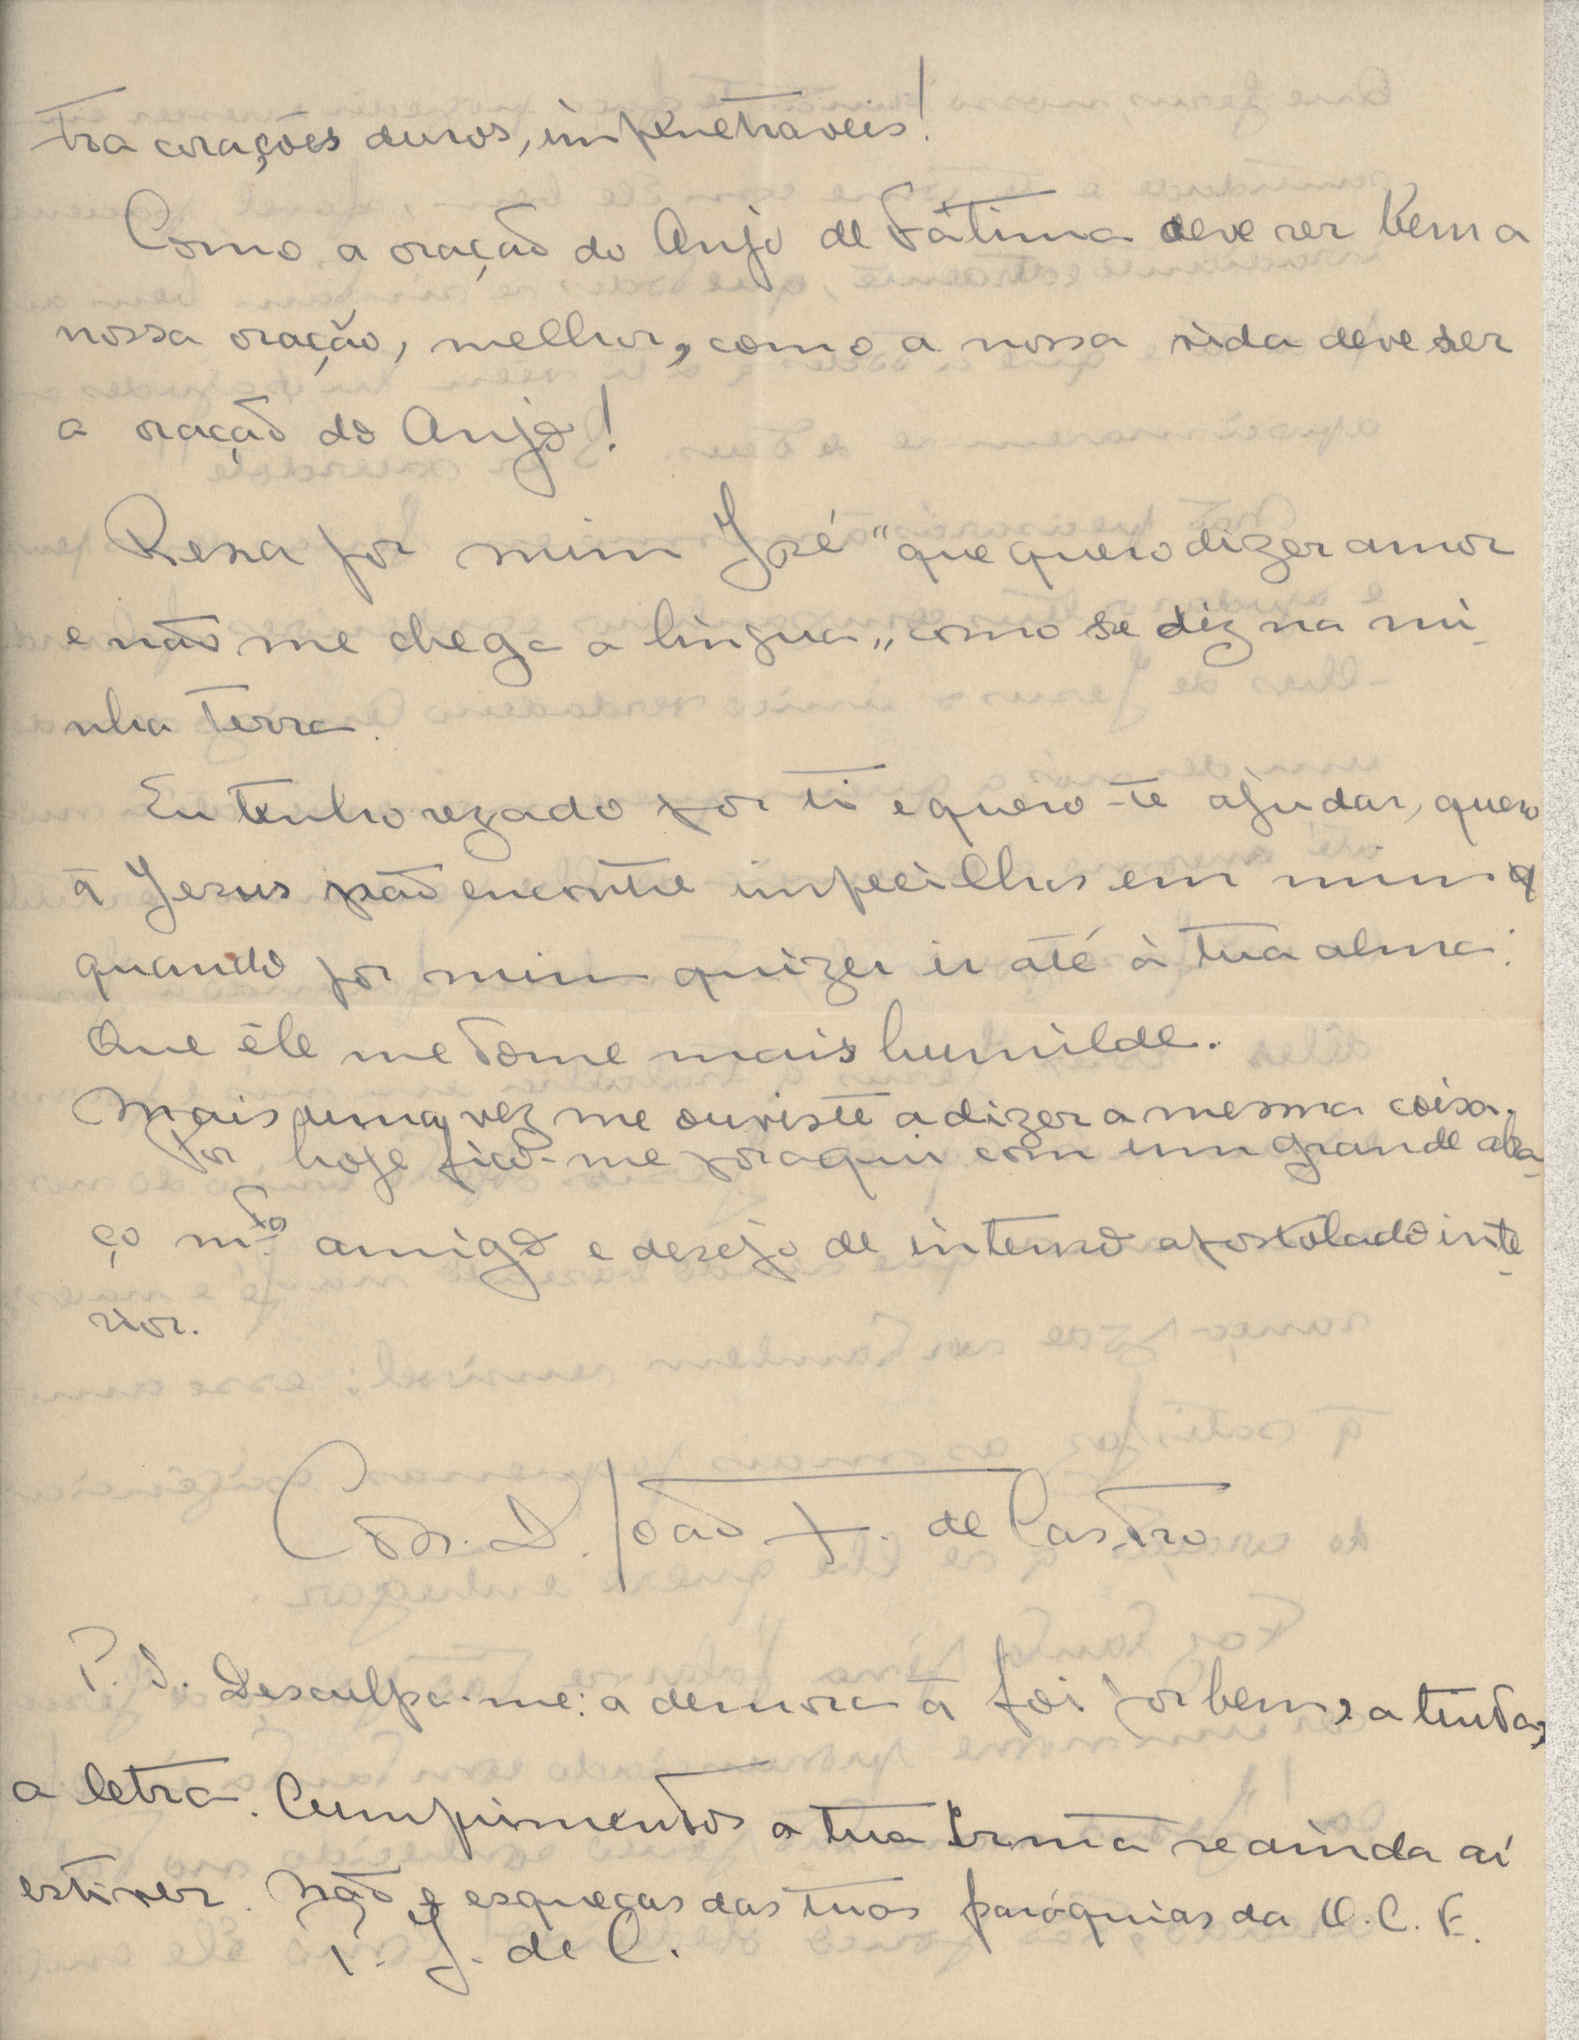 tra corações duros, impenetraveis!
Como a oração do Anjo de Fátima deve ser bem a
nossa oração, melhor, como a nossa vida deve ser
a oração do Anjo!
Resa por mim José "que quero dizer amor
e não me chega a lingua" como se diz na mi-
nha terra.
Eu tenho rezado por ti e quero-te ajudar, quero
q̃ Jesus não encontre impecilhos em mim
quando por mim quizer ir até à tua alma.
Que êle me torne mais humilde.
Mais uma vez me ouviste a dizer a mesma coisa.
Por hoje fico-me por aqui com um grande abra-
ço mto amigo e desejo de intenso apostolado inte-
rior.
João de Castro
P.S. Desculpa-me: a demora q̃ foi por bem, a tinta,
a letra. Cumprimentos a tua Irmã se ainda aí
estiver. Não esqueças das tuas paróquias da
P. J. de C.